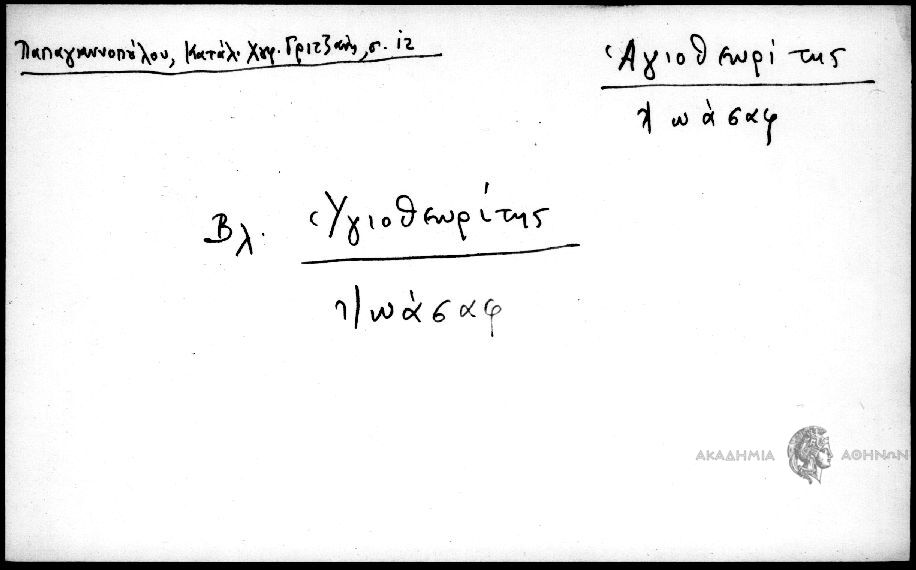 Παπαγιαννοπούλου, Κατάλ. Χφ. Γριτζάνη, σ. ιζ
Ἁγιοθεωρίτης
Ἰωάσαφ
Βλ. Ὑγιοθεωρίτης
Ἰωάσαφ
ΑΚΑΔΗΜΙΑ ΑΘΗΝΩΝ